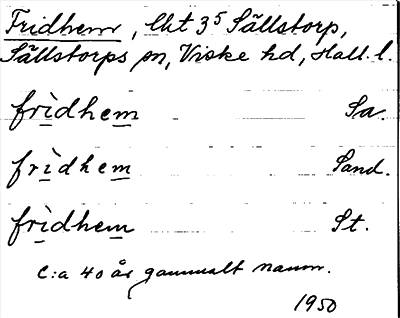 Fridhem, lht 3⁵ Sällstorp,
Sällstorps sn, Viske hd, Hall. l.
fridhem Sa.
fridhem Sand.
fridhem St.
C:a 40 år gammalt namn.
1950